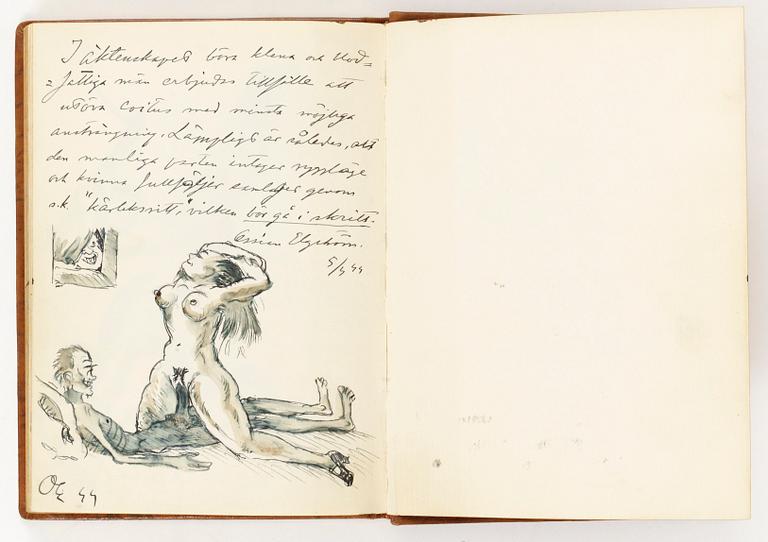 I äktenskapet böra klena och blod=
=fattiga män erbjudas tillfälle att
utöva coitus med minsta möjliga
ansträngning. Lämpligt är således, att
den manliga parten intager ryggläge
och kvinna fullföljer samlaget genom
s.k. "kärleksritt", vilken bör gå i skritt.
Ossian Elgström.
5/5 44
OE 44